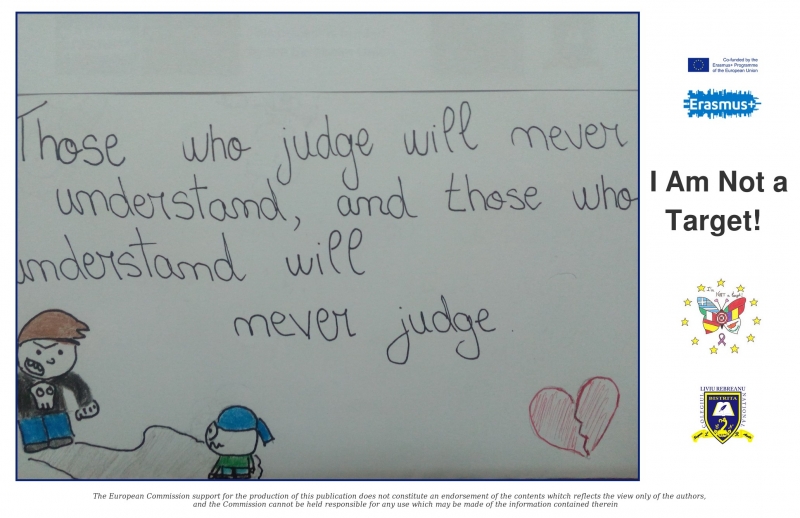 Those who judge will never
understand, and those who
understand will
never judge.
Co-funded by the
Erasmus+ Programme
of the European Union
Erasmus+
I Am Not a
Target!
I'm
NOT a target
LIVIU REBREANU
COLEGIUL
NATIONAL
BISTRITA
The European Commission support for the production of this publication does not constitute an endorsement of the contents whitch reflects the view only of the authors,
and the Commission cannot be held responsible for any use which may be made of the information contained therein